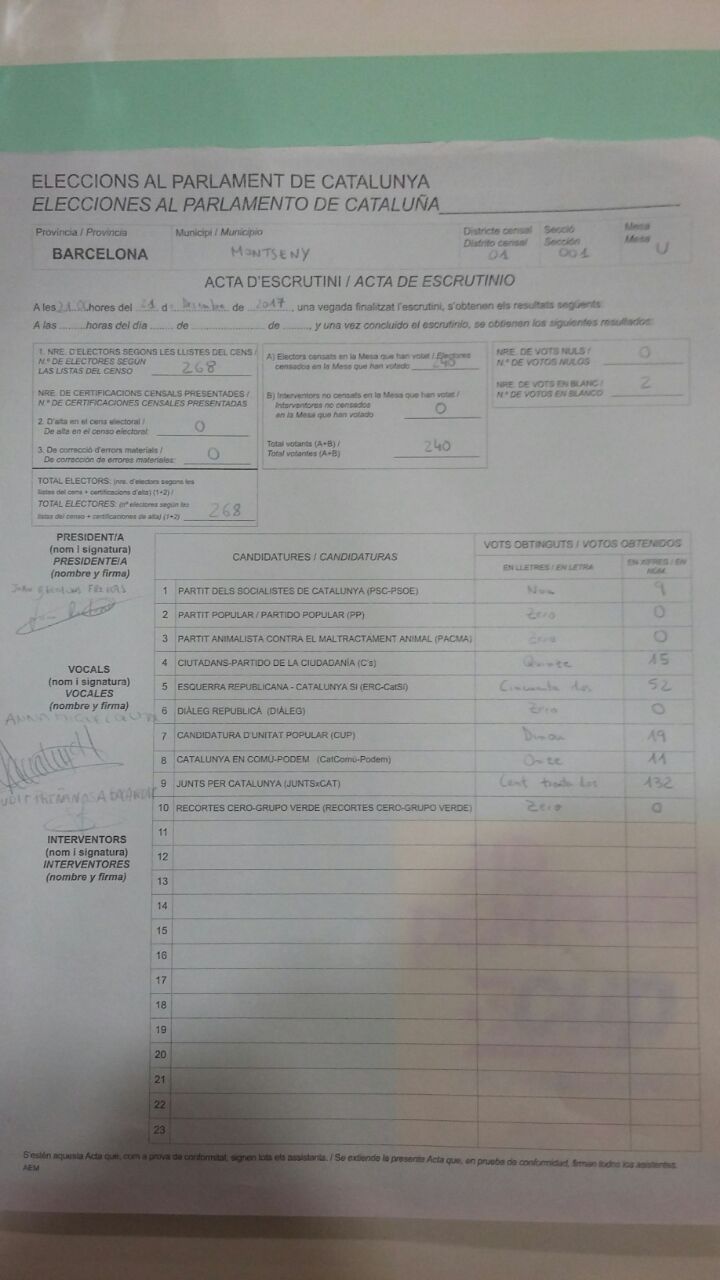 ELECCIONS AL PARLAMENT DE CATALUNYA
ELECCIONES AL PARLAMENTO DE CATALUÑA
Província / Provincia Municipi / Municipio Districte censal Secció Mesa
Distrito censal Sección Mesa
BARCELONA MONTSENY 01 001 U
ACTA D'ESCRUTINI / ACTA DE ESCRUTINIO
A les 21.00 hores del 21 d Desembre de 2017, una vegada finalitzat l'escrutini, s'obtenen els resultats següents:
A las ..........horas del día ........ de ........................ de ........, y una vez concluido el escrutinio, se obtienen los siguientes resultados:
1. NRE. D'ELECTORS SEGONS LES LLISTES DEL CENS /
N.º DE ELECTORES SEGÚN
LAS LISTAS DEL CENSO 268
NRE. DE CERTIFICACIONS CENSALS PRESENTADES /
N.º DE CERTIFICACIONES CENSALES PRESENTADAS
2. D'alta en el cens electoral /
De alta en el censo electoral: 0
3. De correcció d'errors materials /
De corrección de errores materiales: 0
TOTAL ELECTORS: (nre. d'electors segons les
llistes del cens + certificacions d'alta) (1+2) /
TOTAL ELECTORES: (nº electores según las
listas del censo + certificaciones de alta) (1+2) 268
A) Electors censats en la Mesa que han votat / Electores
censados en la Mesa que han votado 240
B) Interventors no censats en la Mesa que han votat /
Interventores no censados
en la Mesa que han votado 0
Total votants (A+B) /
Total votantes (A+B) 240
NRE. DE VOTS NULS /
N.º DE VOTOS NULOS 0
NRE. DE VOTS EN BLANC /
N.º DE VOTOS EN BLANCO 2
PRESIDENT/A
(nom i signatura)
PRESIDENTE/A
(nombre y firma)
VOCALS
(nom i signatura)
VOCALES
(nombre y firma)
INTERVENTORS
(nom i signatura)
INTERVENTORES
(nombre y firma)
CANDIDATURES / CANDIDATURAS VOTS OBTINGUTS / VOTOS OBTENIDOS
EN LLETRES / EN LETRA EN XIFRES / EN NÚM.
1 PARTIT DELS SOCIALISTES DE CATALUNYA (PSC-PSOE) Nou 9
2 PARTIT POPULAR / PARTIDO POPULAR (PP) Zero 0
3 PARTIT ANIMALISTA CONTRA EL MALTRACTAMENT ANIMAL (PACMA) Zero 0
4 CIUTADANS-PARTIDO DE LA CIUDADANÍA (C's) Quinze 15
5 ESQUERRA REPUBLICANA - CATALUNYA SI (ERC-CatSI) Cincuanta dos 52
6 DIÀLEG REPUBLICÀ (DIÀLEG) Zero 0
7 CANDIDATURA D'UNITAT POPULAR (CUP) Dinou 19
8 CATALUNYA EN COMÚ-PODEM (CatComú-Podem) Onze 11
9 JUNTS PER CATALUNYA (JUNTSxCAT) Cent trenta dos 132
10 RECORTES CERO-GRUPO VERDE (RECORTES CERO-GRUPO VERDE) Zero 0
11
12
13
14
15
16
17
18
19
20
21
22
23
S'estén aquesta Acta que, com a prova de conformitat, signen tots els assistents. / Se extiende la presente Acta que, en prueba de conformidad, firman todos los asistentes.
AEM